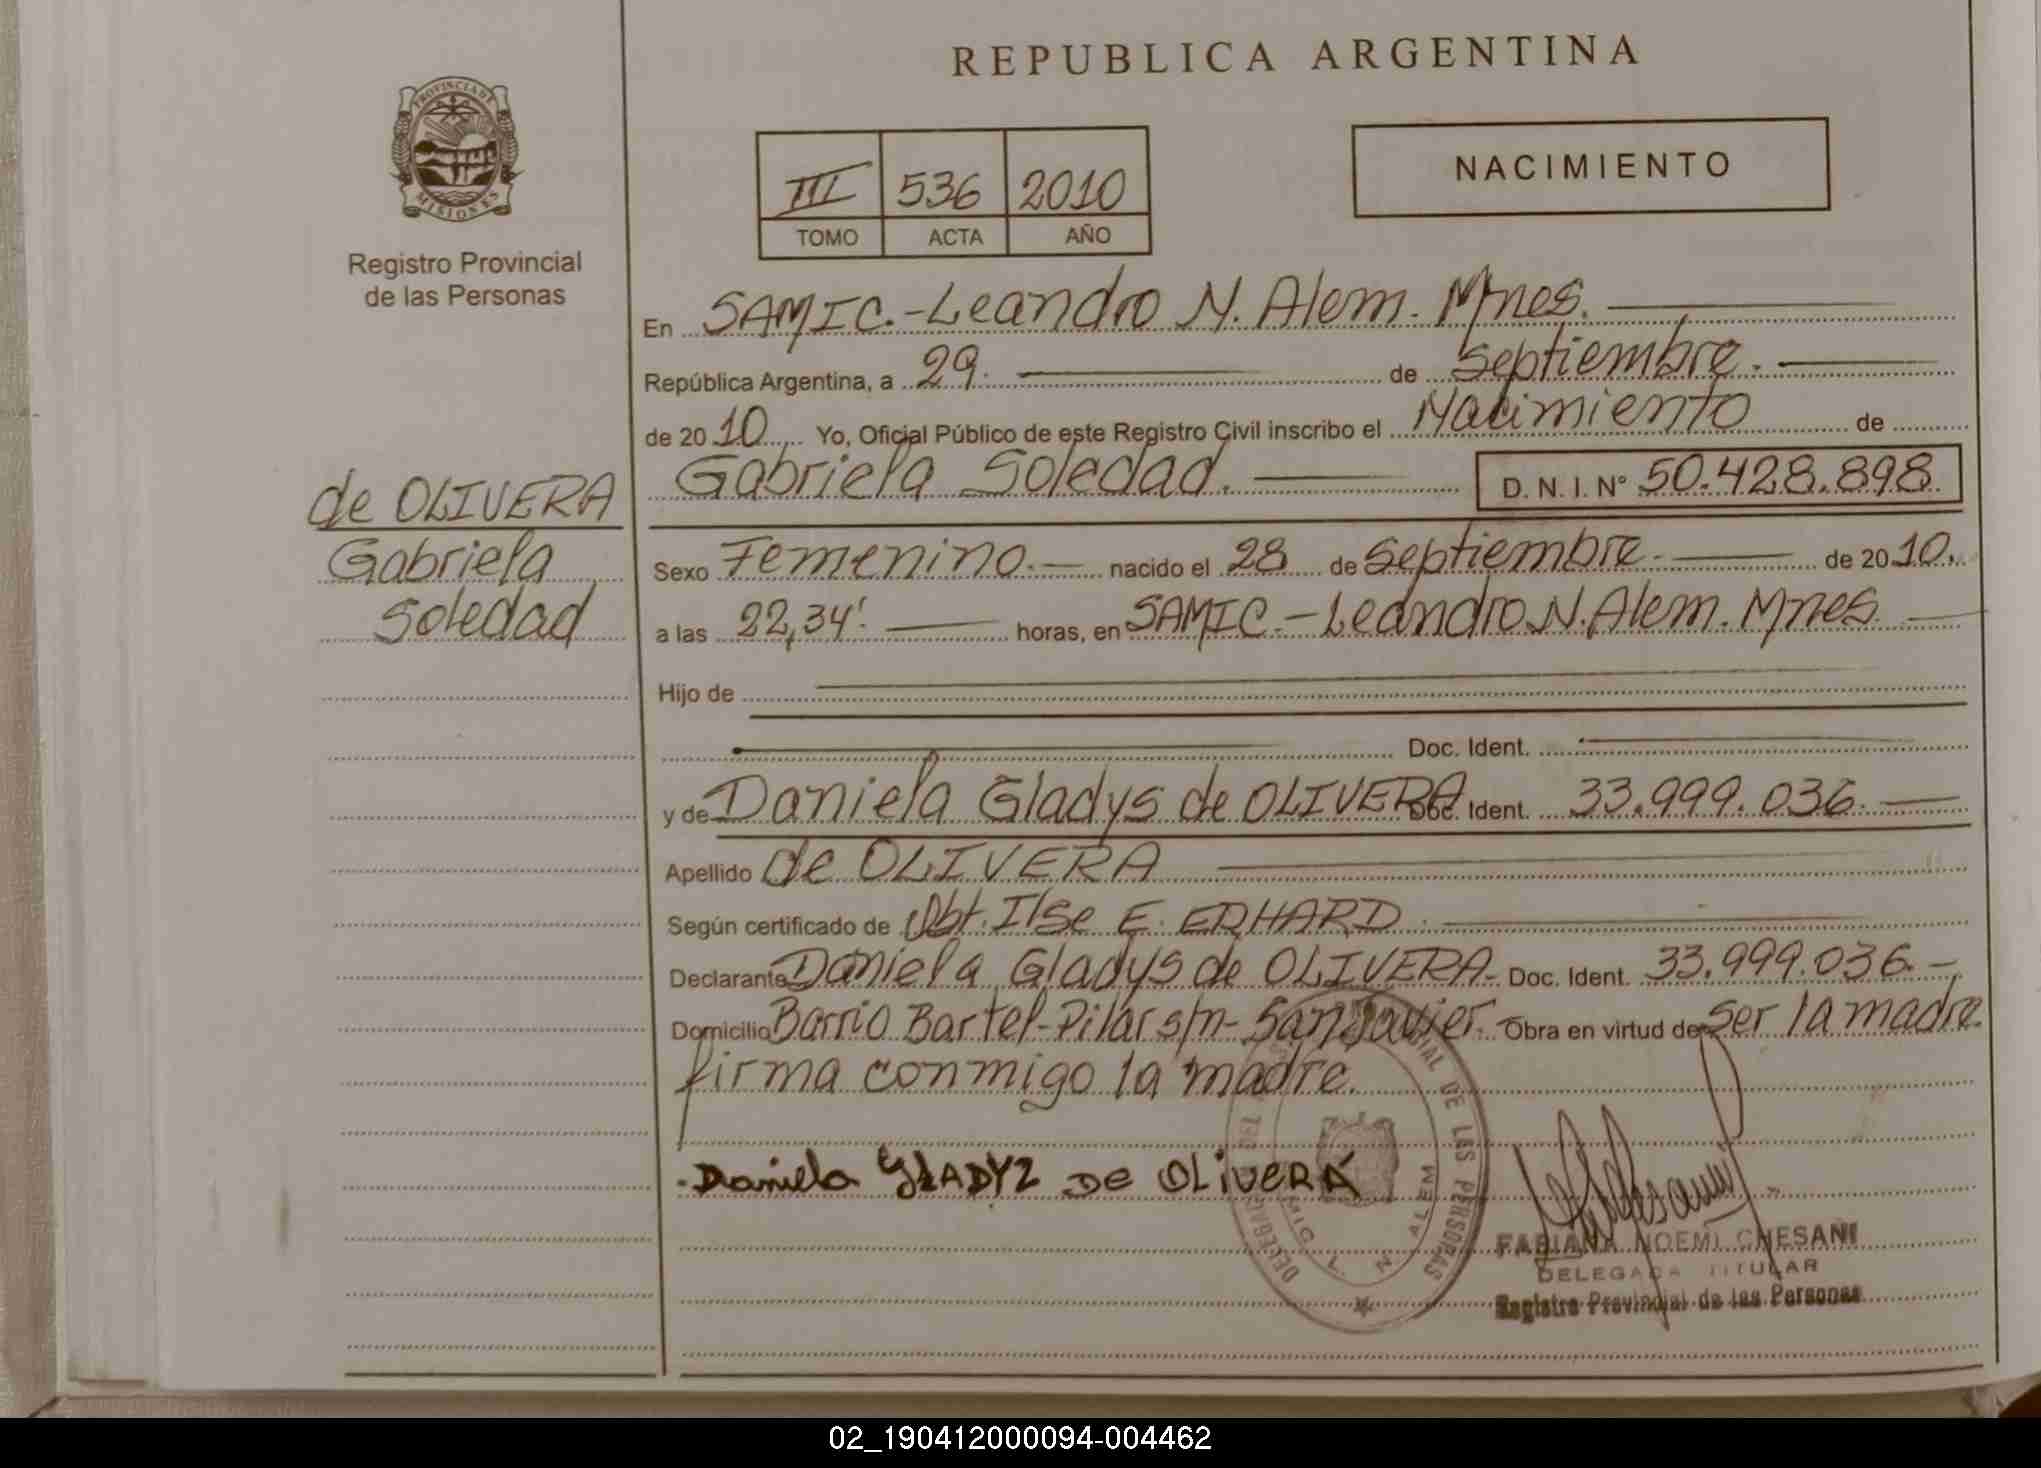 REPUBLICA ARGENTINA
PROVINCIA DE
MISIONES
Registro Provincial
de las Personas
III 536 2010
TOMO ACTA AÑO
NACIMIENTO
En SAMIC.-Leandro N. Alem. Mnes.
República Argentina, a 29. de Septiembre.
de 2010 Yo, Oficial Público de este Registro Civil inscribo el Nacimiento de
Gabriela Soledad. D. N. I. N° 50.428.898
de OLIVERA
Gabriela
Soledad
Sexo Femenino.- nacido el 28 de Septiembre.- de 2010.
a las 22,34'. horas, en SAMIC.-Leandro N. Alem. Mnes.
Hijo de
Doc. Ident.
y de Daniela Gladys de OLIVERA Doc. Ident. 33.999.036.-
Apellido de OLIVERA
Según certificado de Obt. Ilse E. ERHARD.
Declarante Daniela Gladys de OLIVERA- Doc. Ident. 33.999.036.-
Domicilio Barrio Bartel-Pilar s/n- San Javier. Obra en virtud de Ser la madre
firma conmigo la madre.
Daniela GLADYZ DE OLIVERA
DE LAS PERSONAS
L. N. ALEM
FABIANA NOEMI CHESANI
DELEGADA TITULAR
Registro Provincial de las Personas
02_190412000094-004462